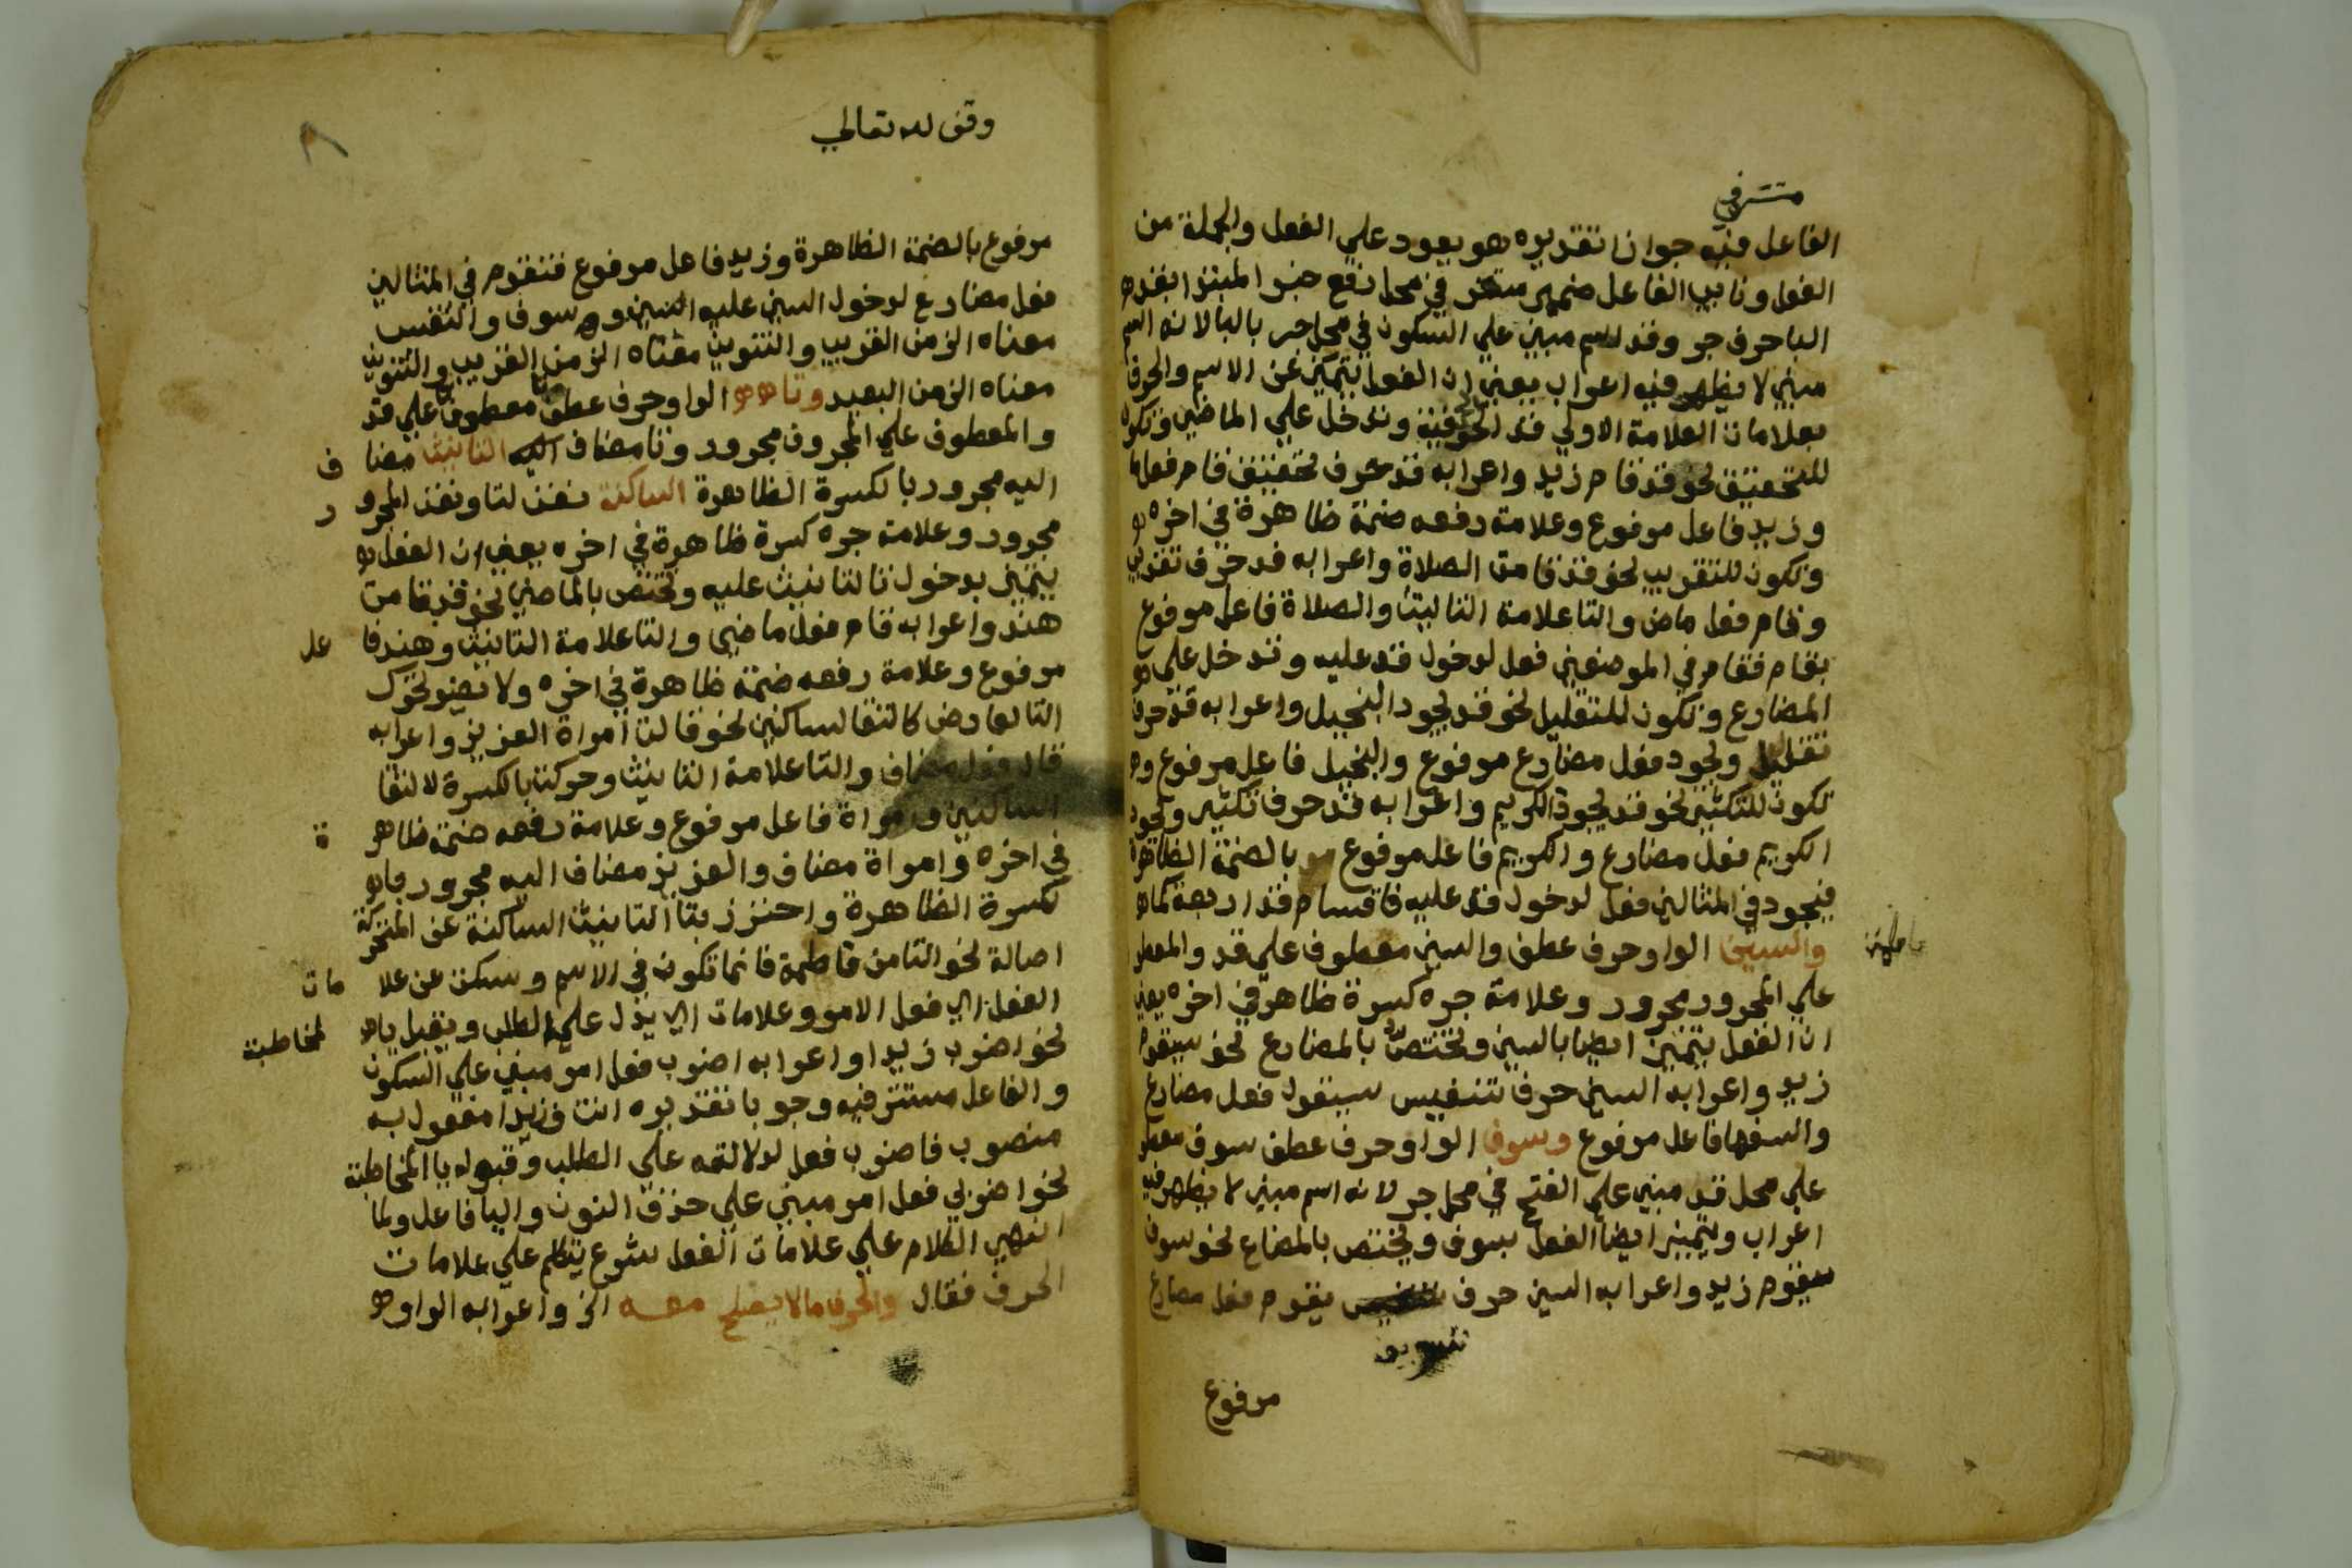 مستتر في
الفاعل فيه جوازا تقديره هو يعود علي الفعل والجملة من
الفعل ونايب الفاعل ضمير مستتر في محل رفع خبر المبتدا بقد
الباحرف جر وقد اسم مبني علي السكون في محل جر بالبا لانه اسم
مبني لا يظهر فيه اعراب يعني ان الفعل يتميز عن الاسم والحرف
بعلامات العلامة الاولي قد الحرفية وتدخل علي الماضي وتكون
للتحقيق نحو قد قام زيد واعرابه قد حرف تحقيق قام فعل ما
وزيد فاعل مرفوع وعلامة رفعه ضمة ظاهرة في اخره
وتكون للتقريب نحو قد قامت الصلاة واعرابه قد حرف تقريب
وقام فعل ماض والتا علامة التانيث والصلاة فاعل مرفوع
بقام فقام في الموضعين فعل لدخول قد عليه وتدخل علي
المضارع وتكون للتقليل نحو قد يجود البخيل واعرابه قد حرف
تقليل ويجود فعل مضارع مرفوع والبخيل فاعل مرفوع و
تكون للتكثير نحو قد يجود الكريم واعرابه قد حرف تكثير ويجود
الكريم فعل مضارع والكريم فاعل مرفوع بالضمة الظاهرة
فيجود في المثالين فعل لدخول قد عليه فاقسام قد اربعة كما
والسين الواو حرف عطف والسين معطوف علي قد والمعطو
علي المجرور مجرور وعلامة جره كسرة ظاهرة في اخره يعني
ان الفعل يتميز ايضا بالسين وتختص بالمضارع نحو سيقو
زيد واعرابه السين حرف تنفيس سيقول فعل مضارع
والسفها فاعل مرفوع وسوف الواو حرف عطف سوف معطو
علي محل قد مبني علي الفتح في محل جر لانه اسم مبني لا يظهر فيه
اعراب ويتميز ايضا الفعل بسوف ويختص بالمضاع نحو سوف
سيقوم زيد واعرابه السين حرف تنفيس يقوم فعل مضارع
تسويف
مرفوع
وقف لله تعالي
٨
مرفوع بالضمة الظاهرة وزيد فاعل مرفوع فتقوم في المثالين
فعل مضارع لدخول السين عليه السين وهو سوف والتنفيس
معناه الزمن القريب والتنوين معناه الزمن القريب والتنوين
معناه الزمن البعيد وتا الواو حرف عطف معطوف علي قد
والمعطوف علي المجرور مجرور وتا مضاف اليه التانيث مضا ف
اليه مجرور بالكسرة الظاهرة الساكنة نعت لتا ونعت المجرو ر
مجرور وعلامة جره كسرة ظاهرة في اخره يعني ان الفعل
يتميز بدخول تا التانيث عليه وتختص بالماضي نحو قد قامت
هند واعرابه قام فعل ماضي والتا علامة التانيث وهند فا عل
مرفوع وعلامة رفعه ضمة ظاهرة في اخره ولا يضر تحرك
التا لعارض كالتقا لساكنين نحو قالت امراة العزيز واعرابه
قال فعل مضاف والتا علامة التانيث وحركت بالكسرة لالتقا
الساكنين وامراة فاعل مرفوع وعلامة رفعه ضمة ظاهر ة
في اخره وامراة مضاف والعزيز مضاف اليه مجرور با
لكسرة الظاهرة واحترز بتا التانيث الساكنة عن المتحركة
اصالة نحو التا من فاطمة فانما تكون في الاسم وسكت عن علا مات
الفعل اي فعل الامر وعلامات ان يدل علي الطلب ويقبل يا لمخاطبة
نحو اضرب زيدا واعرابه اضرب فعل امر مبني علي السكون
والفاعل مستتر فيه وجوبا تقديره انت وزيدا مفعول به
منصوب فاضرب فعل لدلالته علي الطلب وقبوله يا المخاطبة
نحو اضربي فعل امر مبني علي حذف النون واليا فاعل ولما
انتهي الكلام علي علامات الفعل شرع يتكلم علي علامات
الحرف فقال والحرف ما لا يصلح معه الخ واعرابه الواو